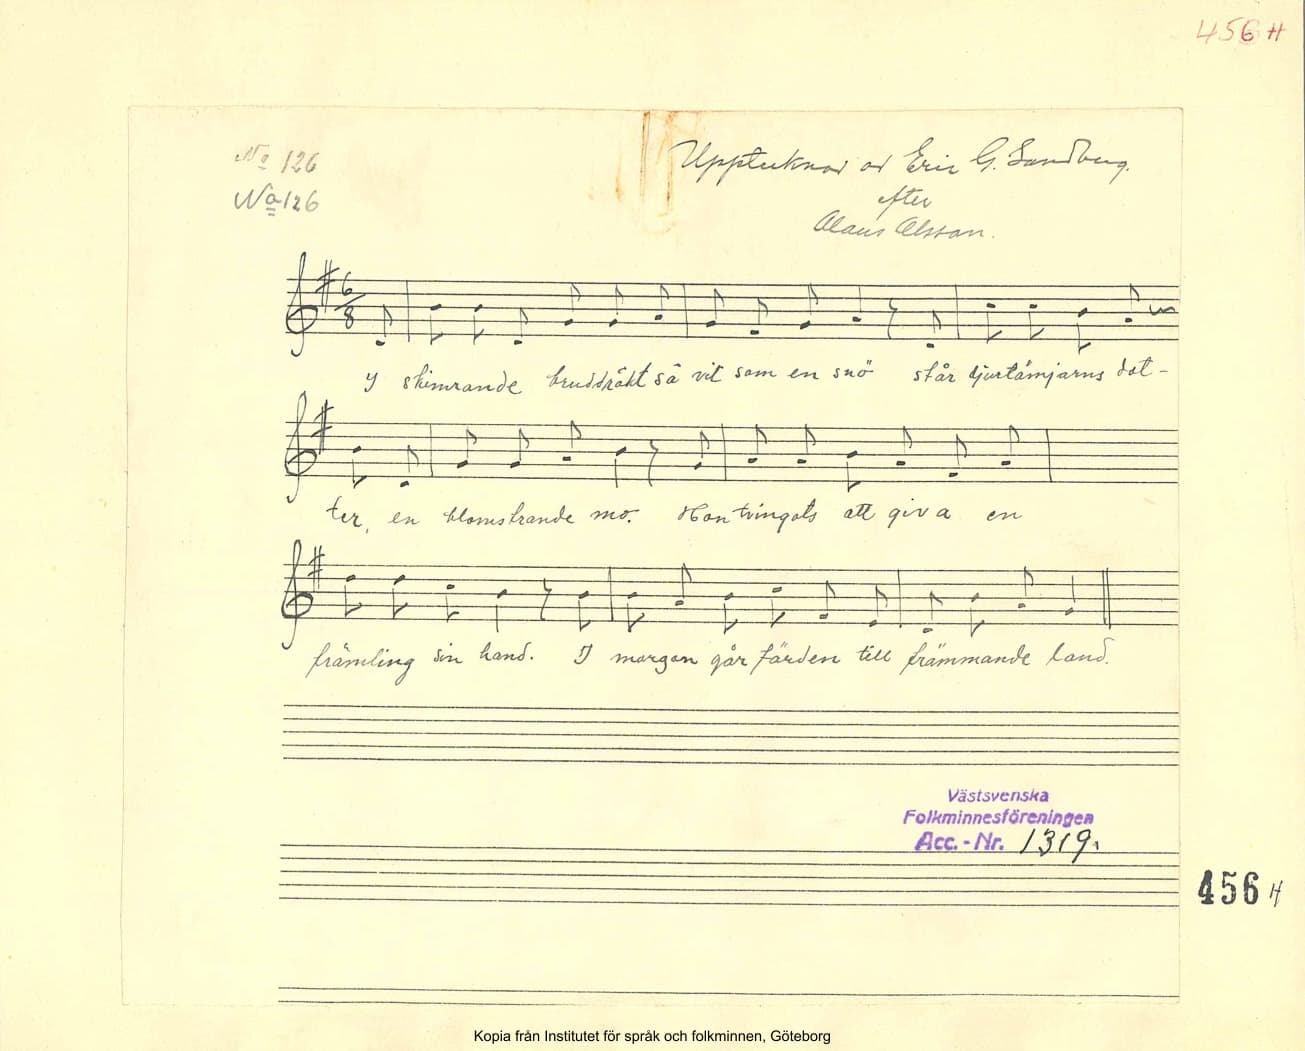 456 H
No 126
No 126
Upptecknad av Eric G. Sandberg.
efter
Olaus Olsson.
6
8
I skimrande bruddräkt så vit som en snö står hjortämjarns dot-
ter, en blomstrande mö. Hon tvingats att giva en
främling sin hand. I morgon går färden till främmande land.
Västsvenska
Folkminnesföreningen
Acc.-Nr. 1319.
456 H
Kopia från Institutet för språk och folkminnen, Göteborg